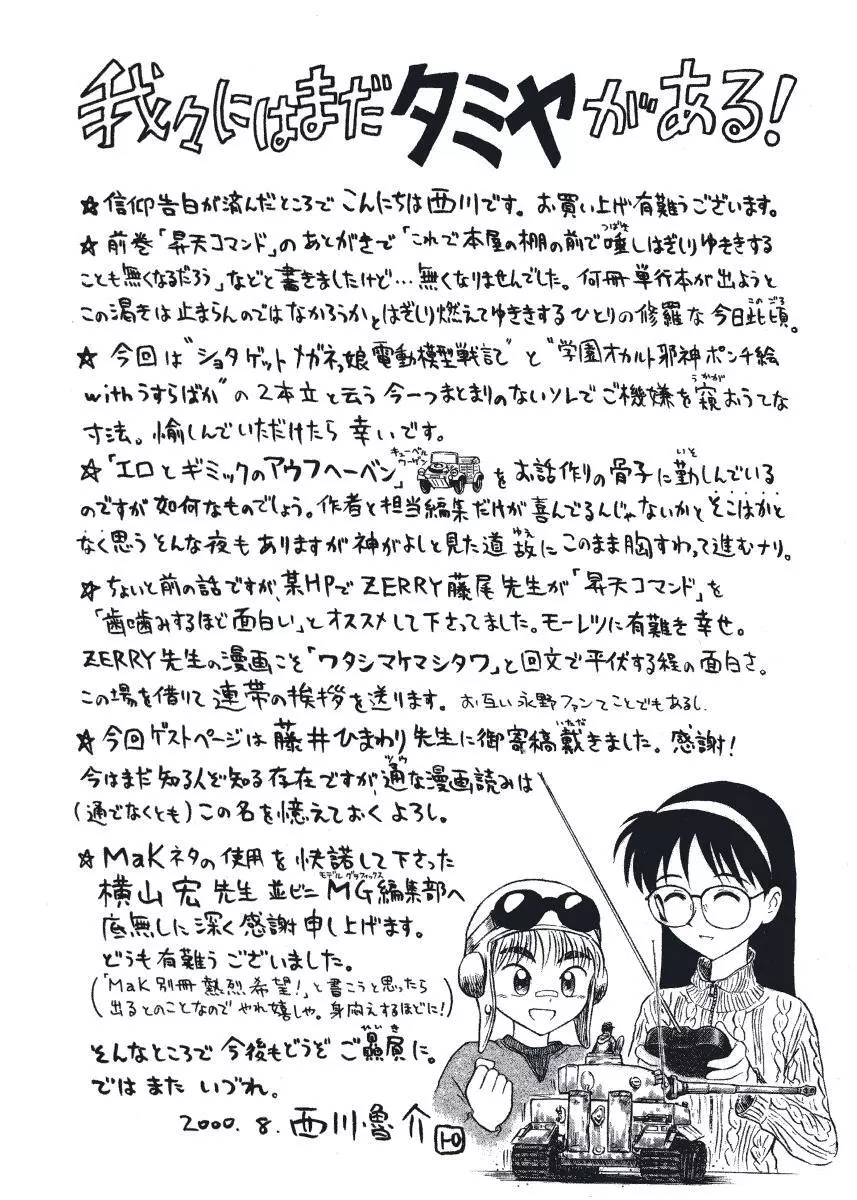 我々にはまだタミヤがある!
☆信仰告白が済んだところでこんにちは西川です。お買い上げ有難うございます。
☆前巻「昇天コマンド」のあとがきで「これで本屋の棚の前で唾しはぎしりゆききする
ことも無くなるだろう」などと書きましたけど…無くなりませんでした。何冊単行本が出ようと
この渇きは止まらんのではなかろうかとはぎしり燃えてゆききするひとりの修羅な今日此頃。
☆今回は"ショタゲットメガネっ娘電動模型戦記"と"学園オカルト邪神ポンチ絵
withうすらばか"の2本立と云う今一つまとまりのないソレでご機嫌を窺おうてな
寸法。愉しんでいただけたら幸いです。
☆「エロとギミックのアウフヘーベン」をお話作りの骨子に勤しんでいる
のですが如何なものでしょう。作者と担当編集だけが喜んでるんじゃないかとそこはかと
なく思うそんな夜もありますが神がよしと見た道故にこのまま胸すわって進むナリ。
☆ちょいと前の話ですが、某HPでZERRY藤尾先生が「昇天コマンド」を
「歯噛みするほど面白い」とオススメして下さってました。モーレツに有難き幸せ。
ZERRY先生の漫画こそ「ワタシマケマシタワ」と回文で平伏する程の面白さ。
この場を借りて連帯の挨拶を送ります。お互い永野ファンてことでもあるし。
☆今回ゲストページは藤井ひまわり先生に御寄稿戴きました。感謝!
今はまだ知る人ぞ知る存在ですが、通な漫画読みは
(通でなくとも)この名を憶えておくよろし。
☆MaKネタの使用を快諾して下さった
横山宏先生並ビニMG編集部へ
底無しに深く感謝申し上げます。
どうも有難うございました。
(「MaK別冊熱烈希望!」と書こうと思ったら
出るとのことなのでやれ嬉しや。身悶えするほどに!)
そんなところで今後もどうぞご贔屓に。
ではまたいづれ。
2000.8.西川魯介